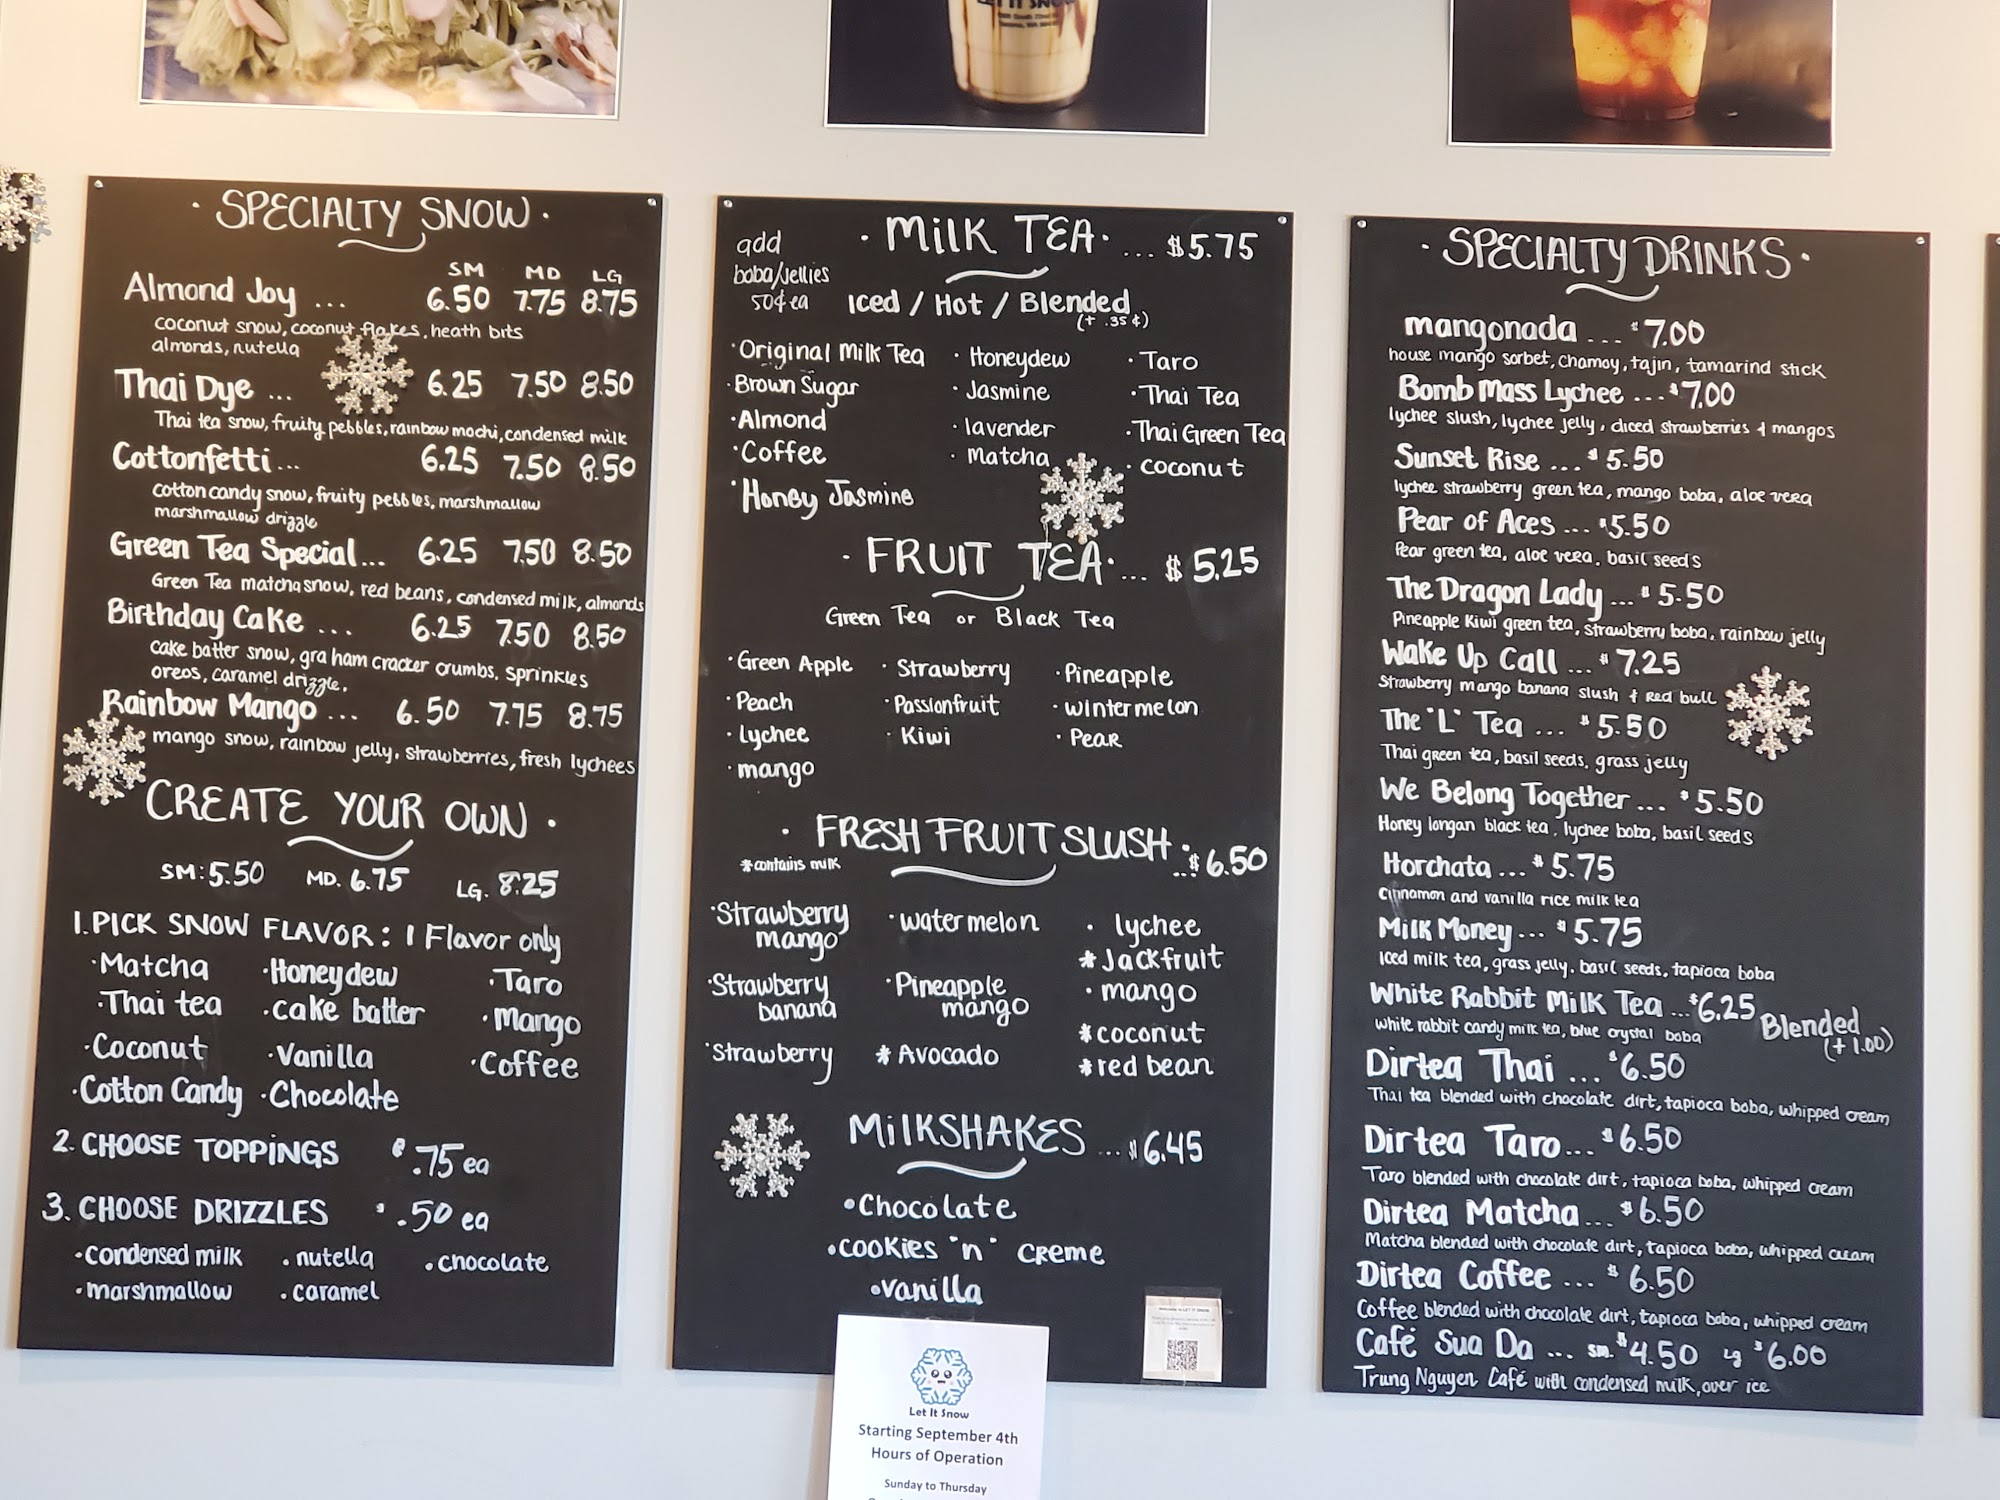 LET IT SNOW
· SPECIALTY SNOW ·
SM MD LG
Almond Joy ... 6.50 7.75 8.75
coconut snow, coconut flakes, heath bits
almonds, nutella
Thai Dye ... 6.25 7.50 8.50
Thai tea snow, fruity pebbles, rainbow mochi, condensed milk
Cottonfetti ... 6.25 7.50 8.50
cotton candy snow, fruity pebbles, marshmallow
marshmallow drizzle
Green Tea Special... 6.25 7.50 8.50
Green Tea matcha snow, red beans, condensed milk, almonds
Birthday Cake ... 6.25 7.50 8.50
cake batter snow, graham cracker crumbs, sprinkles
oreos, caramel drizzle.
Rainbow Mango ... 6.50 7.75 8.75
mango snow, rainbow jelly, strawberries, fresh lychees
CREATE YOUR OWN ·
SM: 5.50 MD. 6.75 LG. 8.25
1. PICK SNOW FLAVOR: 1 Flavor only
·Matcha ·Honeydew ·Taro
·Thai tea ·cake batter ·Mango
·Coconut ·Vanilla ·Coffee
·Cotton Candy ·Chocolate
2. CHOOSE TOPPINGS .75 ea
3. CHOOSE DRIZZLES $ .50 ea
·condensed milk ·nutella ·chocolate
·marshmallow ·caramel
· MILK TEA· ... $5.75
add
boba/jellies
50¢ ea
Iced / Hot / Blended
(+ .35¢)
·Original Milk Tea ·Honeydew ·Taro
·Brown Sugar ·Jasmine ·Thai Tea
·Almond ·lavender ·Thai Green Tea
·Coffee ·Matcha ·coconut
·Honey Jasmine
· FRUIT TEA· ... $5.25
Green Tea or Black Tea
·Green Apple ·Strawberry ·Pineapple
·Peach ·Passionfruit ·wintermelon
·lychee ·Kiwi ·Pear
·mango
· FRESH FRUIT SLUSH · ... $6.50
*contains milk
·Strawberry mango ·watermelon ·lychee
*Jackfruit
·Strawberry banana ·Pineapple mango ·mango
*coconut
·Strawberry *Avocado *red bean
MILKSHAKES ... $6.45
·Chocolate
·cookies "n" creme
·vanilla
Let It Snow
Starting September 4th
Hours of Operation
Sunday to Thursday
· SPECIALTY DRINKS ·
mangonada ... $7.00
house mango sorbet, chamoy, tajin, tamarind stick
Bomb Mass Lychee ... $7.00
lychee slush, lychee jelly, diced strawberries & mangos
Sunset Rise ... $5.50
lychee strawberry green tea, mango boba, aloe vera
Pear of Aces ... $5.50
Pear green tea, aloe vera, basil seeds
The Dragon Lady ... $5.50
Pineapple Kiwi green tea, strawberry boba, rainbow jelly
Wake Up Call ... $7.25
Strawberry mango banana slush & Red bull
The "L" Tea ... $5.50
Thai green tea, basil seeds, grass jelly
We Belong Together ... $5.50
Honey longan black tea, lychee boba, basil seeds
Horchata ... $5.75
cinnamon and vanilla rice milk tea
Milk Money ... $5.75
Iced milk tea, grass jelly, basil seeds, tapioca boba
White Rabbit Milk Tea ... $6.25 Blended (+1.00)
white rabbit candy milk tea, blue crystal boba
Dirtea Thai ... $6.50
Thai tea blended with chocolate dirt, tapioca boba, whipped cream
Dirtea Taro... $6.50
Taro blended with chocolate dirt, tapioca boba, whipped cream
Dirtea Matcha ... $6.50
Matcha blended with chocolate dirt, tapioca boba, whipped cream
Dirtea Coffee ... $6.50
Coffee blended with chocolate dirt, tapioca boba, whipped cream
Café Sua Da ... sm. $4.50 Lg $6.00
Trung Nguyen Café with condensed milk, over ice